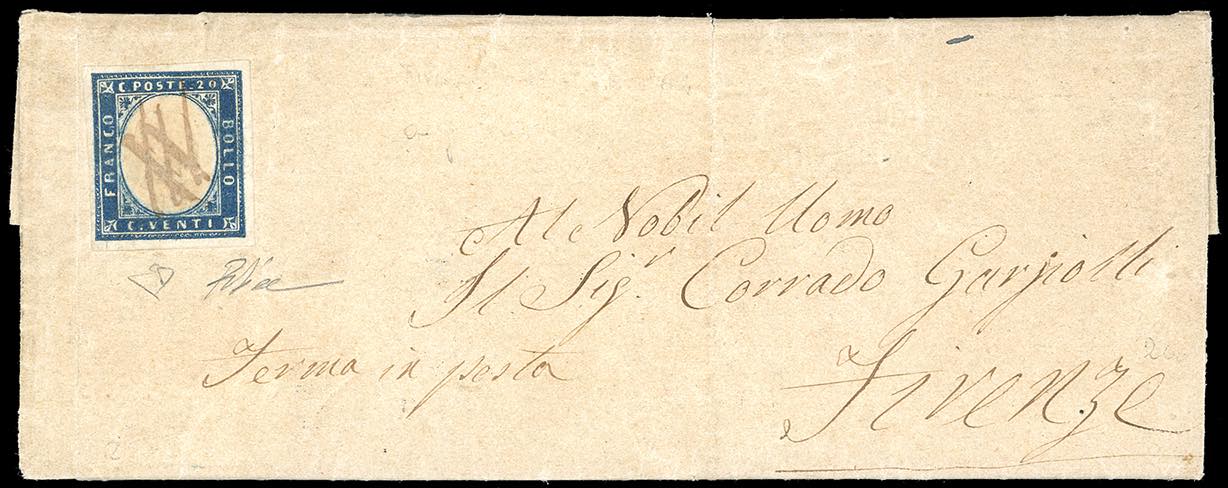 C. POSTE. 20
FRANCO
BOLLO
C. VENTI
Al Nobil Uomo
Il Sigr. Corrado
Ferma in posta
Firenze